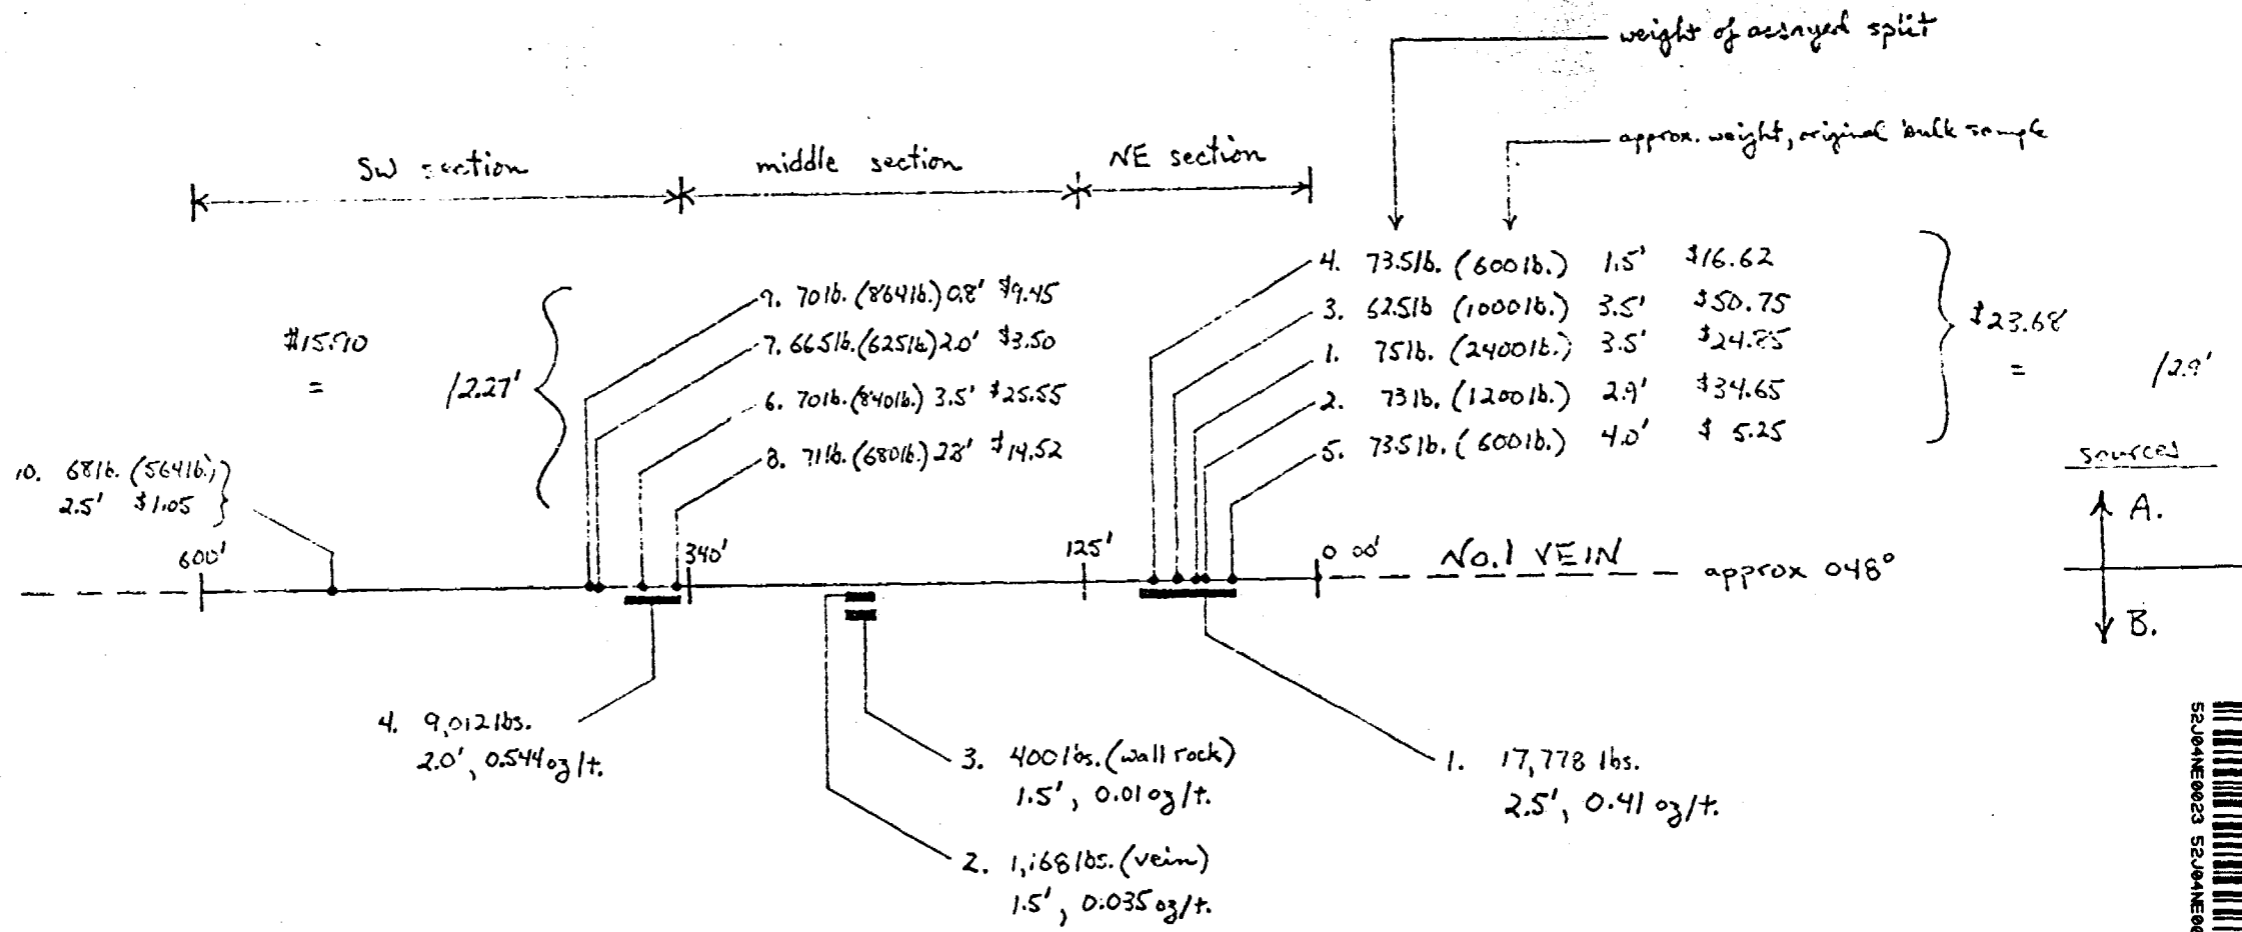 weight of assayed split
approx. weight, original bulk sample
SW section
middle section
NE section
4. 73.5lb. (600lb.) 1.5' $16.62
3. 62.5lb (1000lb.) 3.5' $50.75
1. 75lb. (2400lb.) 3.5' $24.85
2. 73lb. (1200lb.) 2.9' $34.65
5. 73.5lb. (600lb.) 4.0' $ 5.25
$23.68
=
/2.9'
9. 70lb. (864lb.) 0.8' $9.45
7. 66.5lb. (625lb) 2.0' $3.50
6. 70lb. (840lb.) 3.5' $25.55
8. 71lb. (680lb.) 2.8' $14.52
$15.90
=
/2.27'
10. 68lb. (564lb.)
2.5' $1.05
sources
A.
B.
600'
340'
125'
0 00'
No. 1 VEIN
approx 048°
4. 9,012 lbs.
2.0', 0.544 oz/t.
3. 400 lbs. (wall rock)
1.5', 0.01 oz/t.
2. 1,168 lbs. (vein)
1.5', 0.035 oz/t.
1. 17,778 lbs.
2.5', 0.41 oz/t.
52J04NE0023 52J04NE00